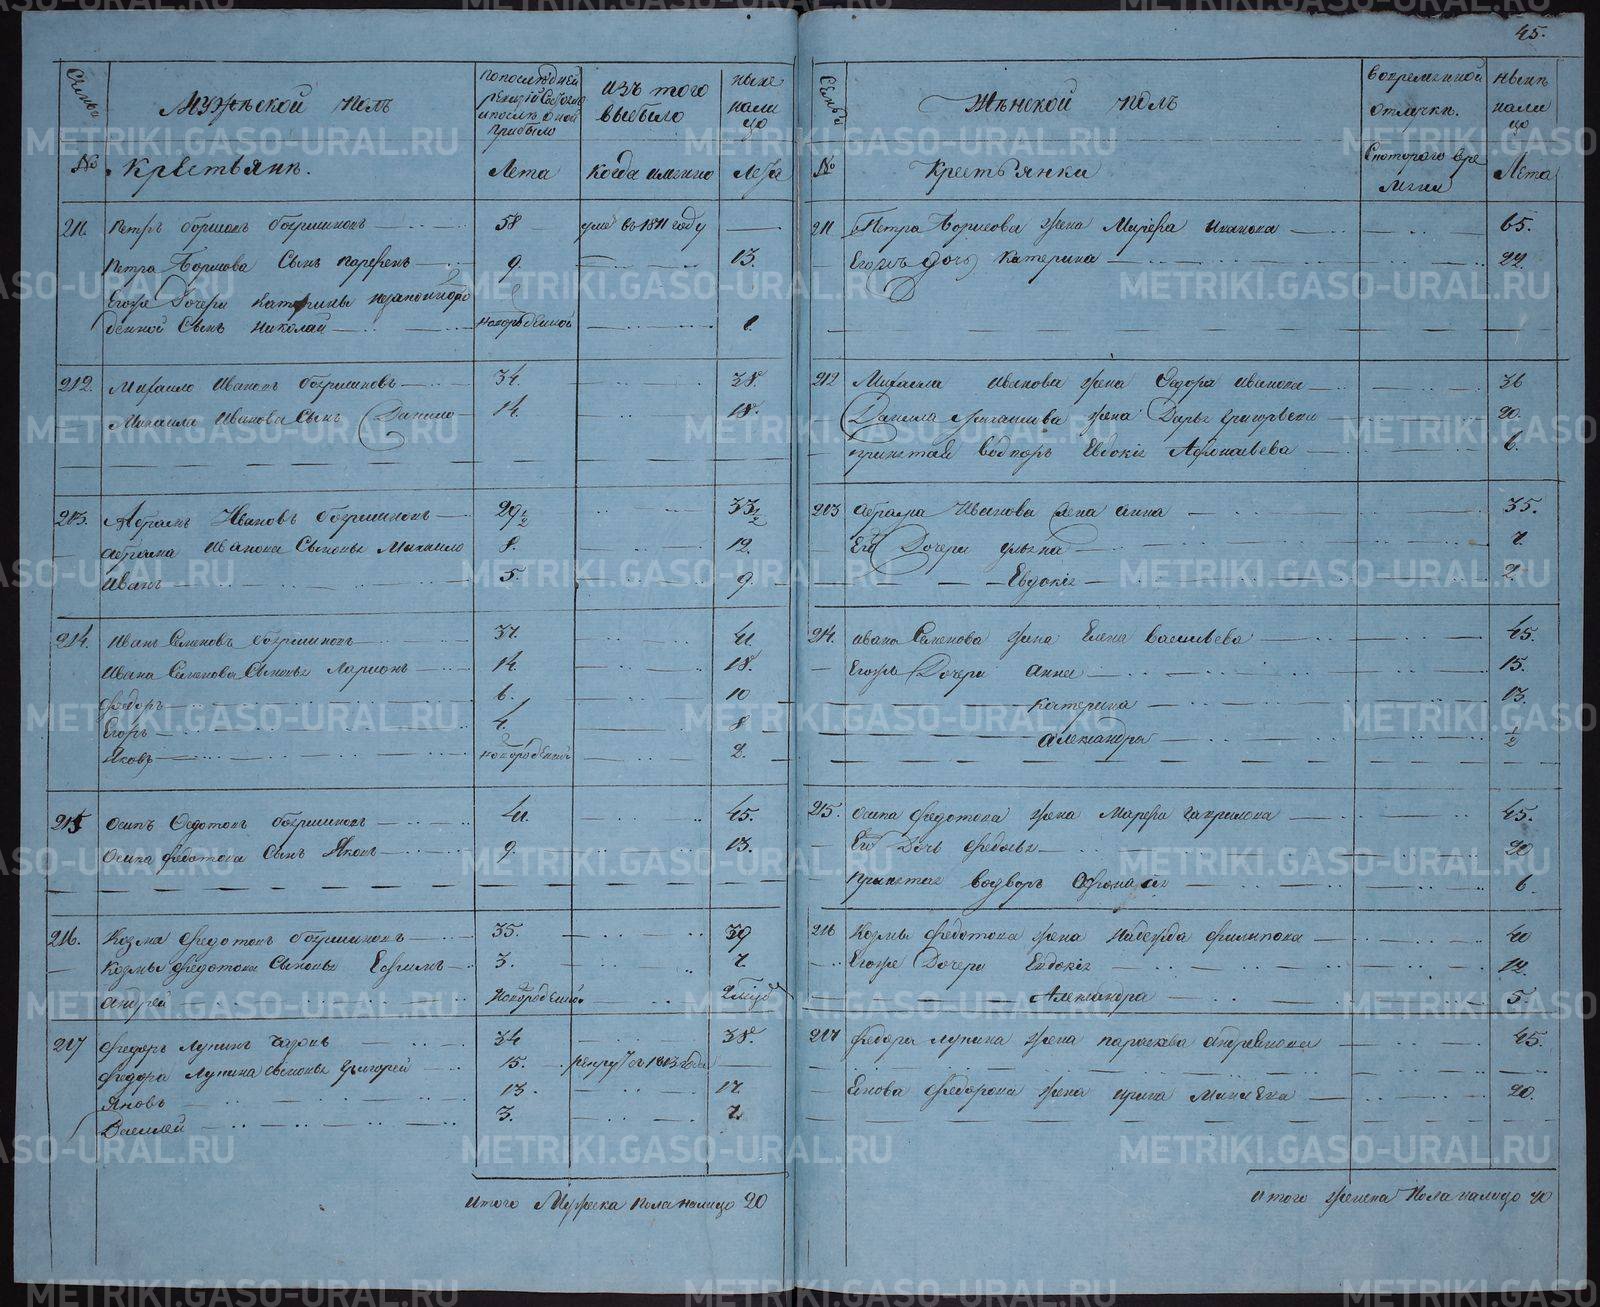 45.
Семьи
Мужеской полъ
по последней ревизии состояло и после оной прибыло
изъ того выбыло
ныне налицо
№
Крестьяне.
Лета
когда имянно
Лета
211
Петръ Борисовъ
58
умре въ 1811 году
Петра Борисова Сынъ Парфенъ
9.
13.
Егожъ Дочери Катерины незаконноро
жденной Сынъ Николай
новорожденной
1
212.
Михаило Ивановъ
34.
38.
Михаила Иванова Сынъ Данило
14.
18.
213.
Абрамъ Ивановъ
29 1/2
33 1/2
Абрама Иванова Сыновья Михаило
8.
12.
Иванъ
5.
9.
214.
Иванъ Семеновъ
37.
41.
Ивана Семенова Сыновья Ларионъ
14.
18.
Федоръ
6.
10
Егоръ
4.
8
Яковъ
новорожденной
2.
215
Осипъ Федотовъ
41.
45.
Осипа Федотова Сынъ Яковъ
9.
13.
216.
Козма Федотовъ
35.
39
Козмы Федотова Сыновья Ефимъ
3.
7
Андрей
новорожденной
217
Федоръ Лупинъ
34
38.
Федора Лупина сыновья Григорей
15.
рекрутъ 1813 года
Яковъ
13.
17
Василей
3.
7
Итого Мужеска пола налицо 20
Семьи
Женской полъ
во временной отлучке.
ныне налицо
№
Крестьянки
С котораго времени
Лета
211
Петра Борисова жена Марфа Иванова
65.
Егожъ дочь Катерина
22.
212
Михаила Иванова жена Федора Иванова
36
Данила Михаилова жена Дарья Григорьева
20.
принятая Евдокия Афонасьева
6.
213
Абрама Иванова жена Анна
35.
Ево Дочери Ульяна
7.
Евдокия
2
214.
Ивана Семенова жена Елена Васильева
45.
Егожъ Дочери Анна
15.
Катерина
13
Александра
1/2
215.
Осипа Федотова жена Марфа Гаврилова
45.
Ево Дочь Федосья
20
Принятая
6
216
Козмы Федотова жена Надежда Филипова
40
Егоже Дочери Евдокия
12.
Александра
5.
217
Федора Лупина жена Парасковья Андреянова
45.
Якова Федорова жена Ирина Минеева
20.
Итого женска Пола налицо 20
METRIKI.GASO-URAL.RU